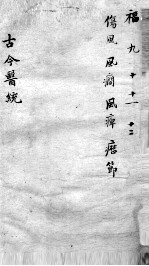 福 九 十 十一 十二
傷風 風癇 風痺 癧節
古今醫統